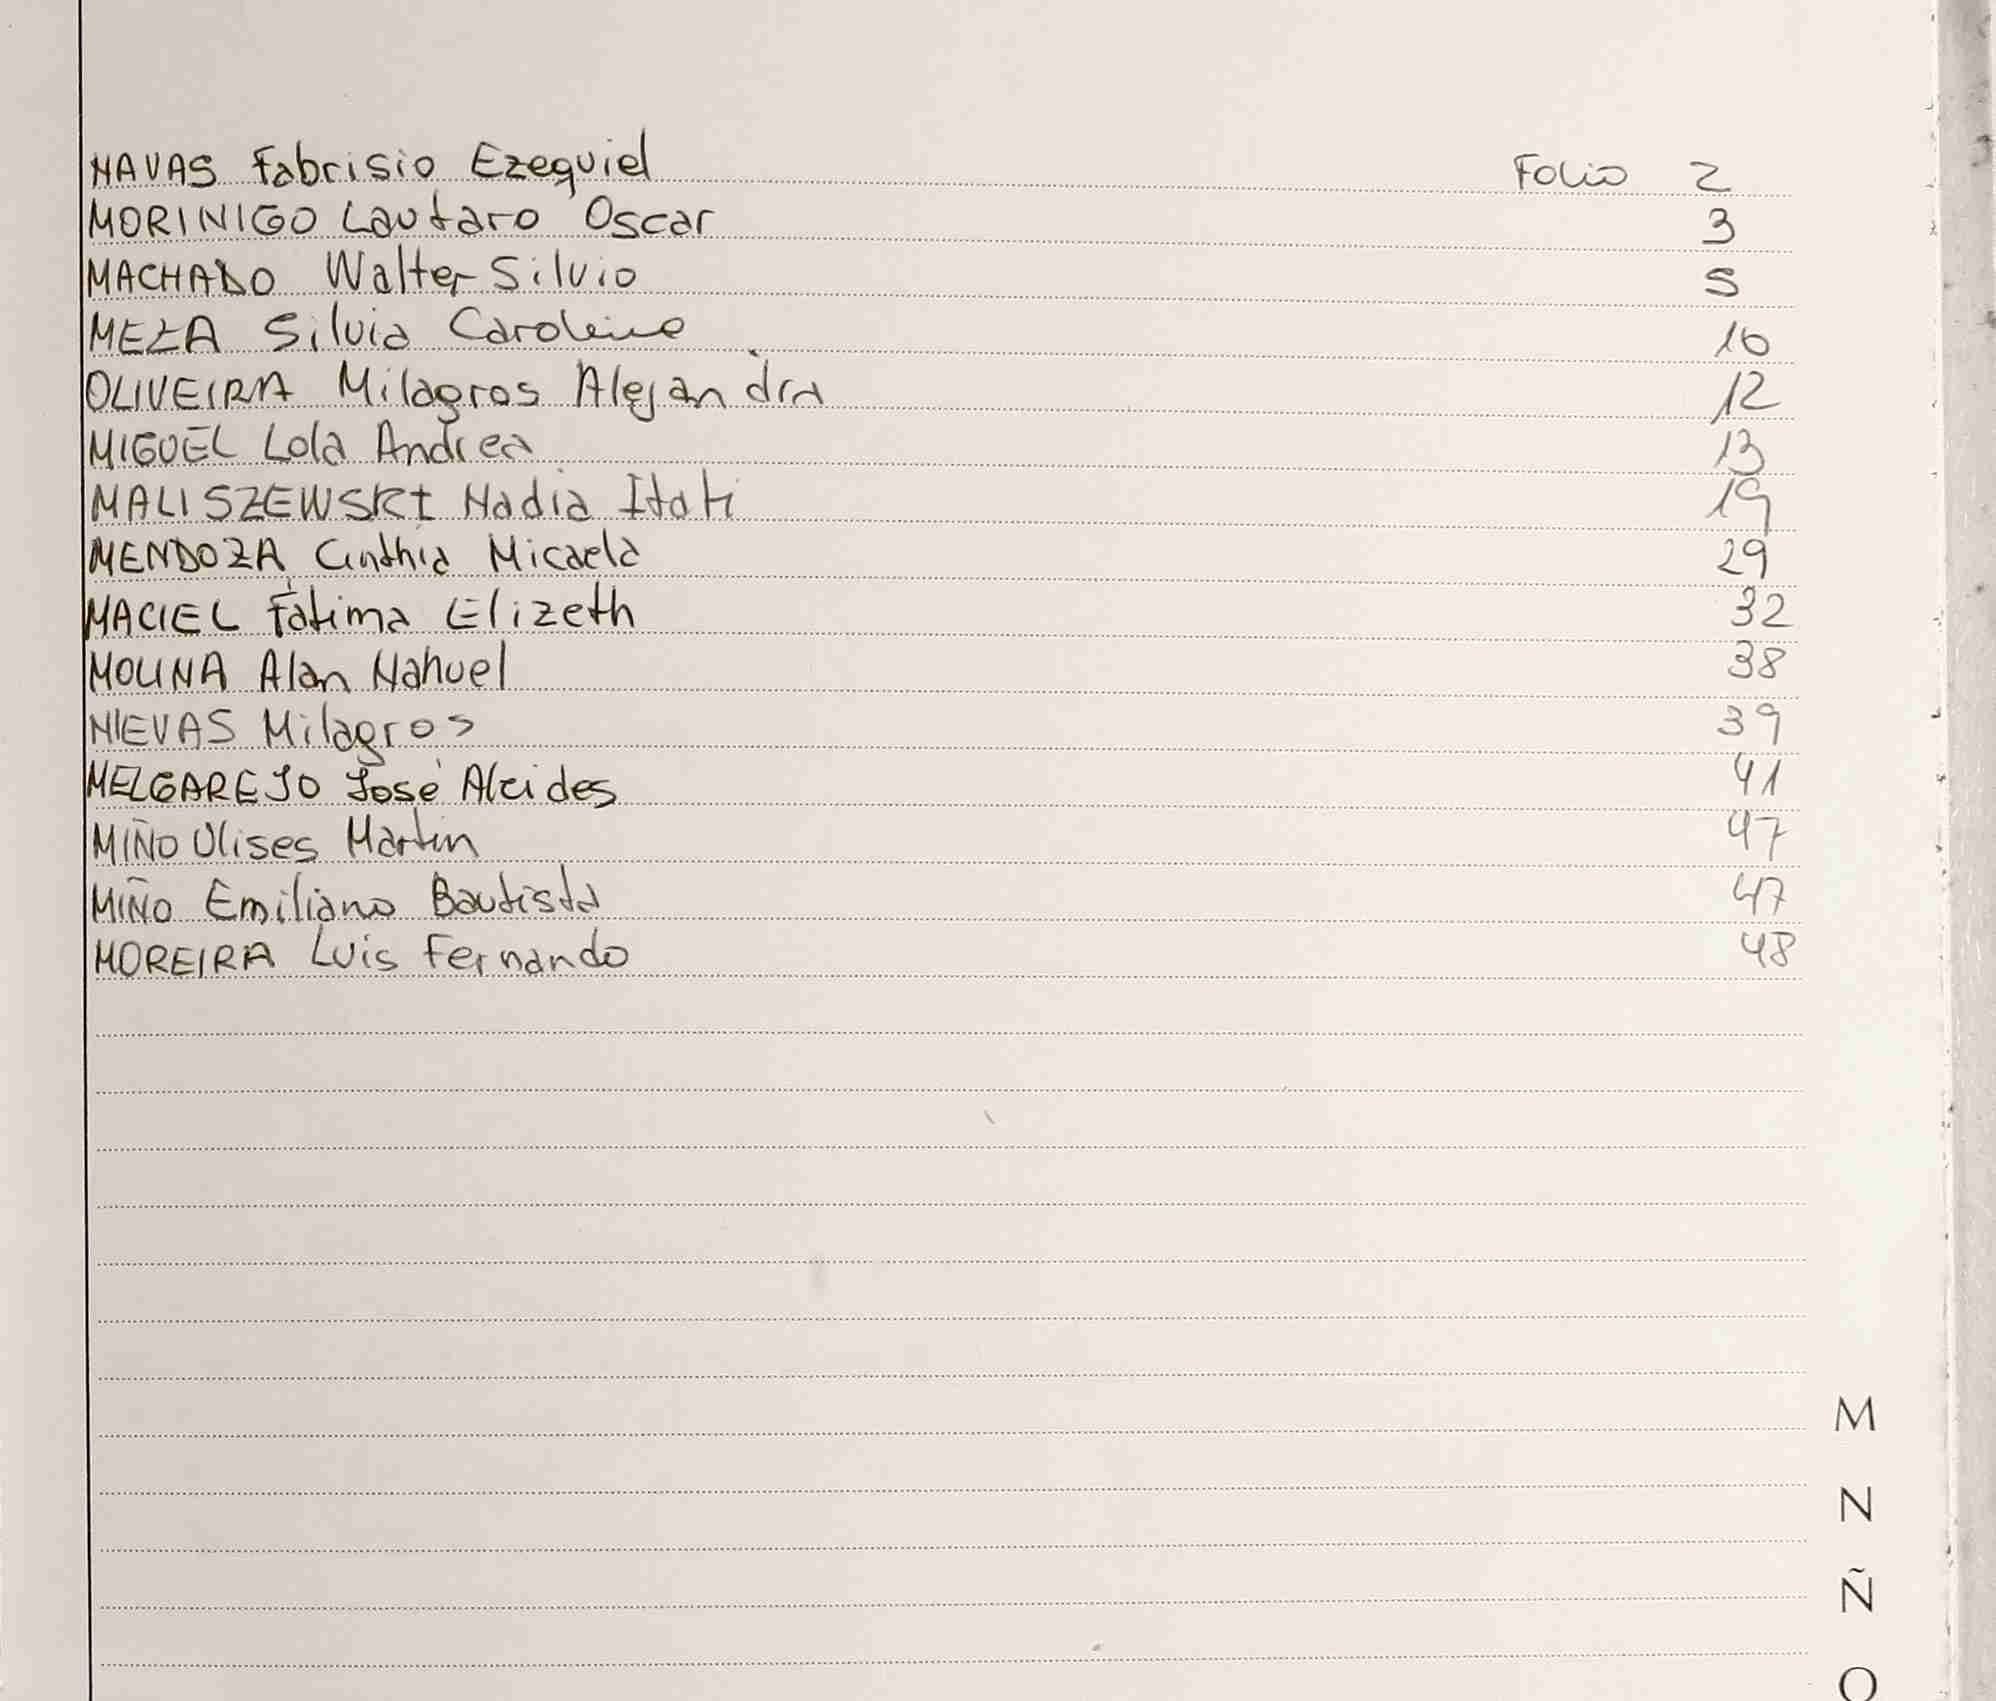 NAVAS Fabrisio Ezequiel Folio 2
MORINIGO Lautaro Oscar 3
MACHADO Walter Silvio 5
MEZA Silvia Caroline 10
OLIVEIRA Milagros Alejandra 12
MIGUEL Lola Andrea 13
MALISZEWSKI Nadia Itati 19
MENDOZA Cinthia Micaela 29
MACIEL Fátima Elizeth 32
MOLINA Alan Nahuel 38
NIEVAS Milagros 39
MELGAREJO José Alcides 41
MIÑO Ulises Martin 47
MIÑO Emiliano Bautista 47
MOREIRA Luis Fernando 48
M
N
Ñ
O